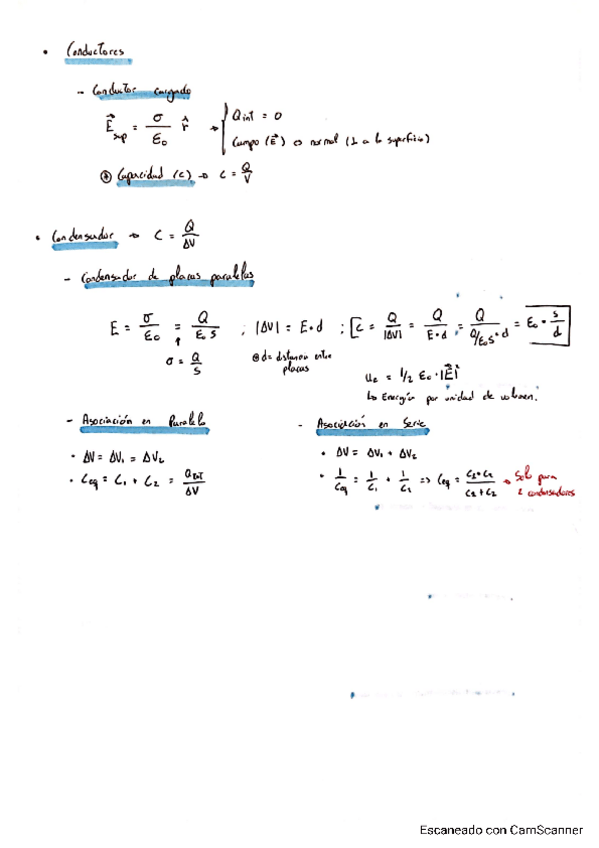 • Conductores
- Conductor cargado
E⃗sup = σ/ε₀ r̂ → { Qint = 0
Campo (E⃗) es normal (⊥ a la superficie)
⊛ Capacidad (C) → C = Q/V
• Condensador → C = Q/ΔV
- Condensador de placas paralelas
E = σ/ε₀ = Q/ε₀S ; |ΔV| = E·d ; [C = Q/|ΔV| = Q/E·d = Q/Q/ε₀S·d = ε₀·s/d
↑
σ = Q/S
⊛ d = distancia entre placas
uₑ = 1/2 ε₀·|E⃗|²
↳ Energía por unidad de volumen.
- Asociación en Paralelo
• ΔV = ΔV₁ = ΔV₂
• Ceq = C₁ + C₂ = QTOT/ΔV
- Asociación en Serie
• ΔV = ΔV₁ + ΔV₂
• 1/Ceq = 1/C₁ + 1/C₂ => Ceq = C₁·C₂/C₁+C₂ → Solo para
2 condensadores
Escaneado con CamScanner